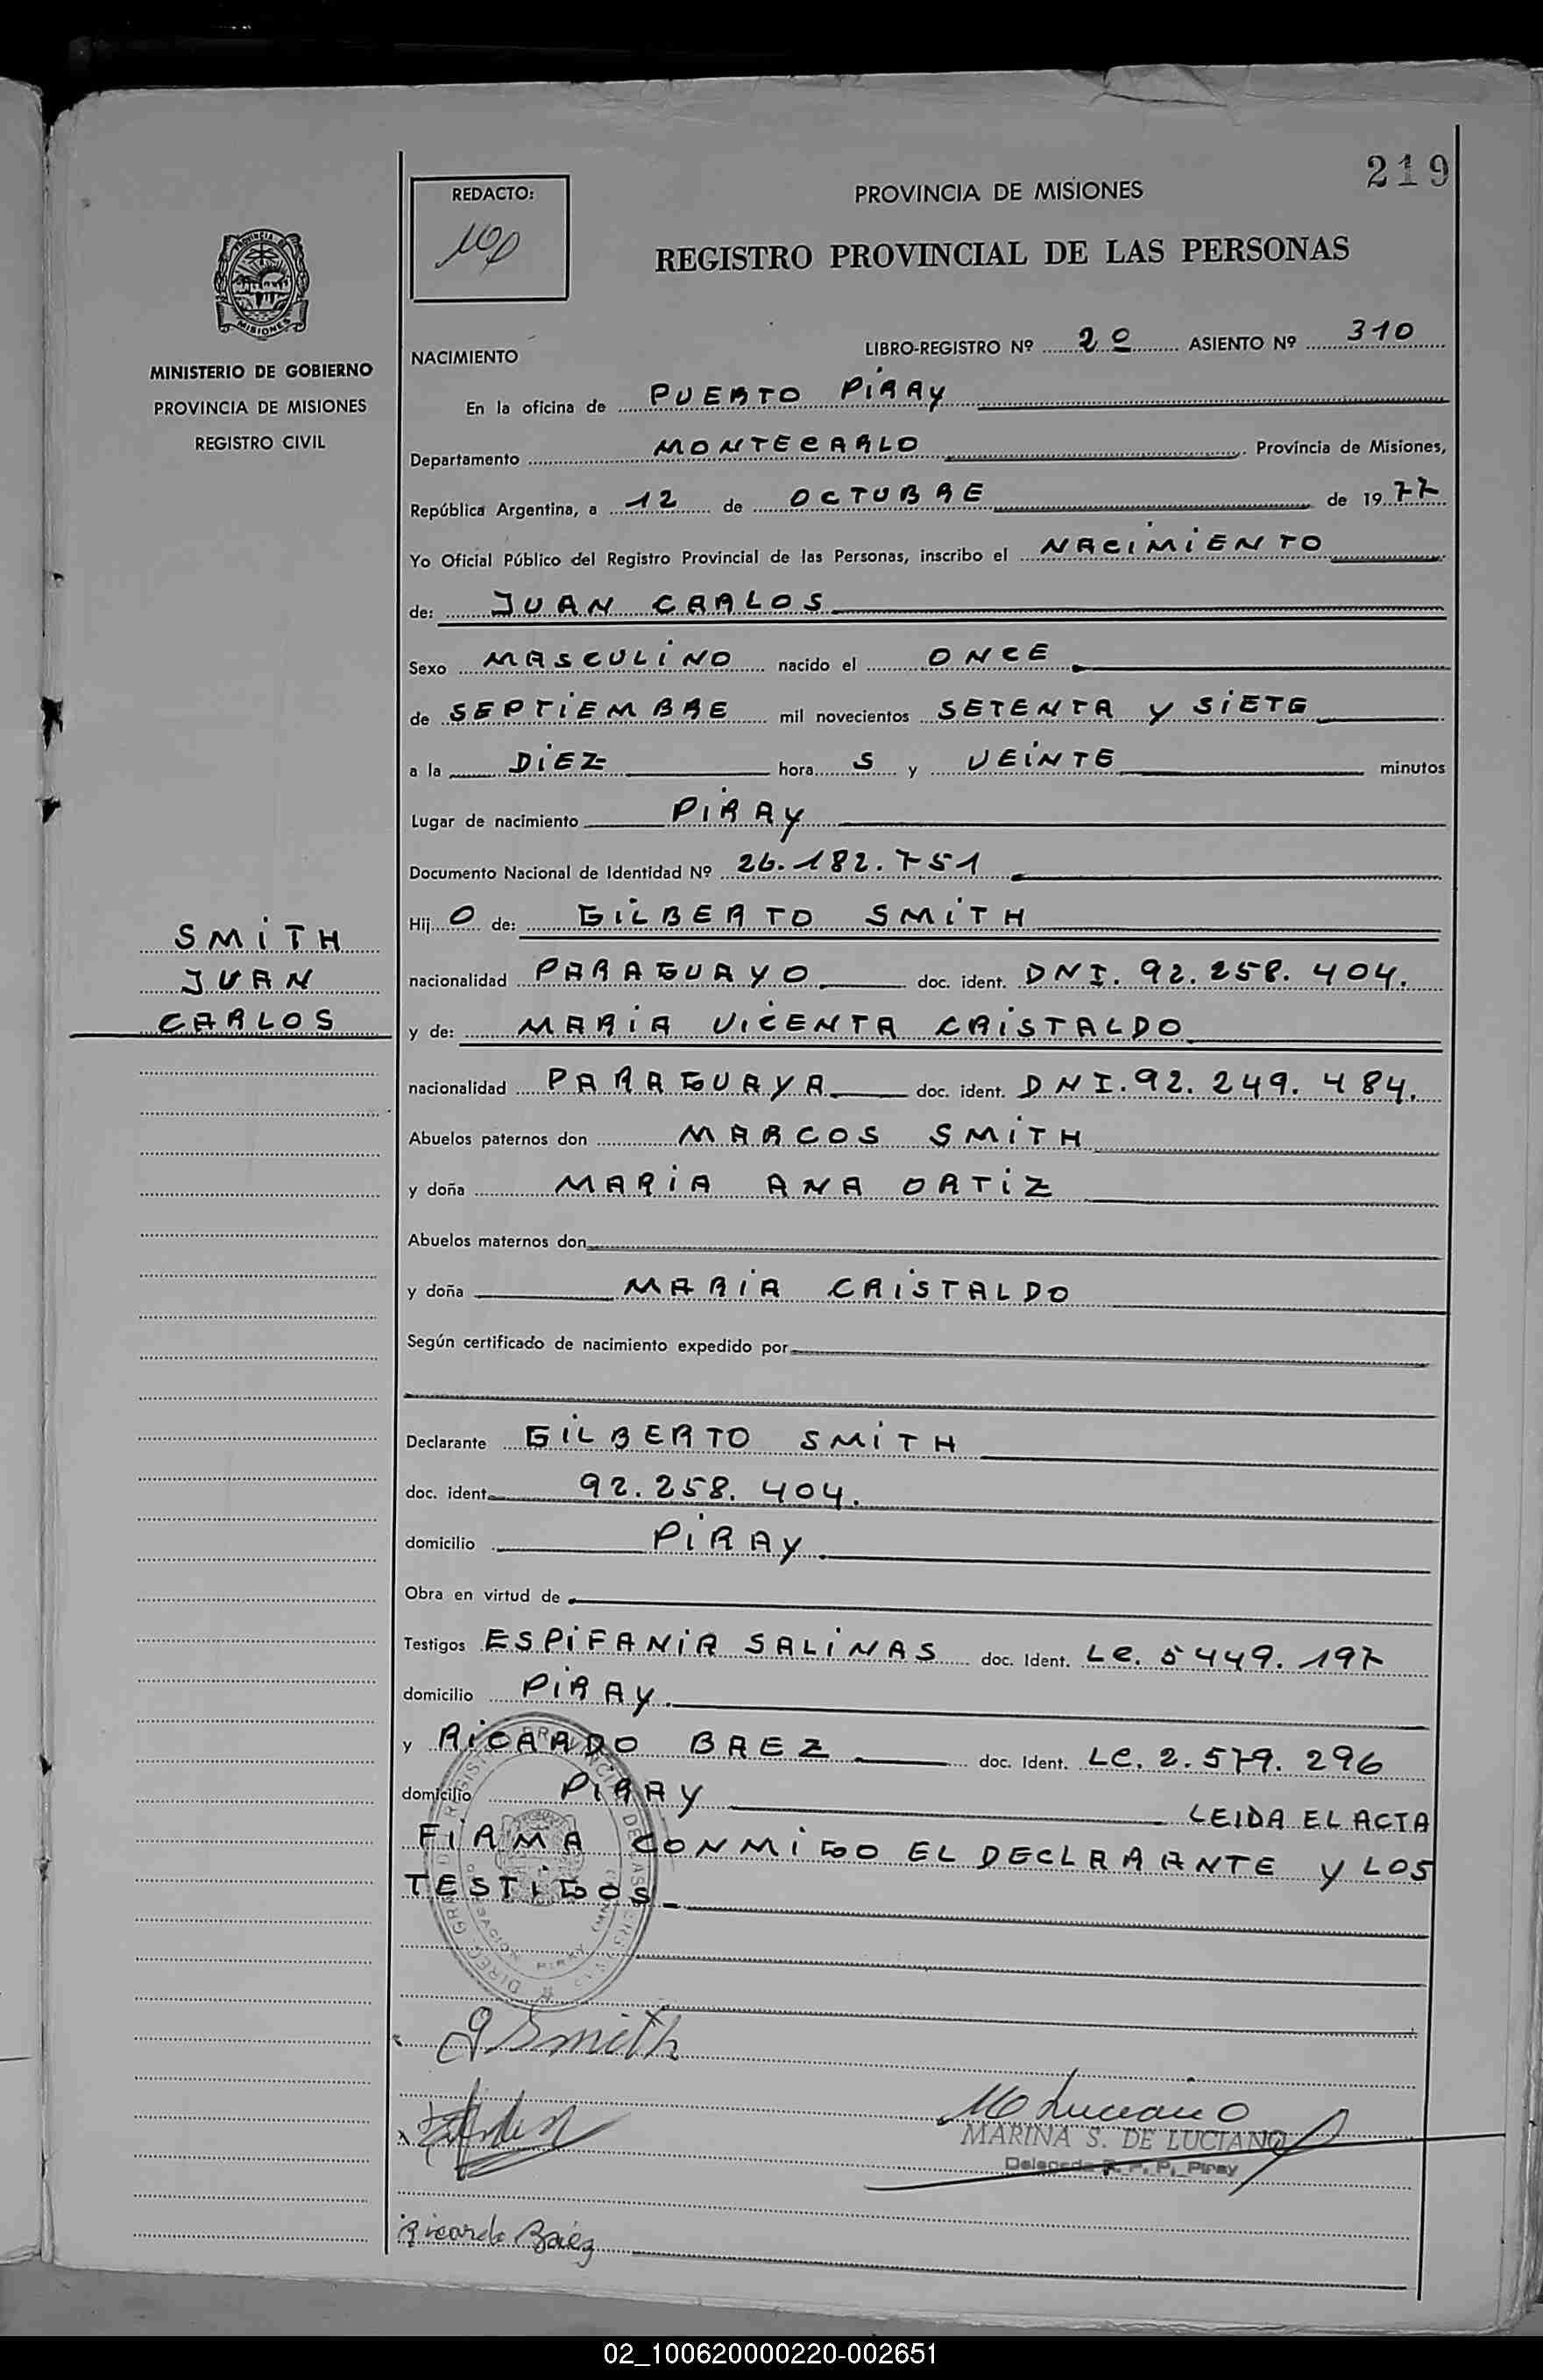 219
REDACTO:
PROVINCIA DE MISIONES
REGISTRO PROVINCIAL DE LAS PERSONAS
PROVINCIA DE
MISIONES
MINISTERIO DE GOBIERNO
PROVINCIA DE MISIONES
REGISTRO CIVIL
NACIMIENTO LIBRO-REGISTRO Nº 2º ASIENTO Nº 310
En la oficina de PUERTO PiRAY
Departamento MONTECARLO Provincia de Misiones,
República Argentina, a 12 de OCTUBRE de 1977
Yo Oficial Público del Registro Provincial de las Personas, inscribo el NACiMiENTO
de: JUAN CARLOS
Sexo MASCULiNO nacido el ONCE
de SEPTiEMBRE mil novecientos SETENTA y SiETE
a la DiEZ hora S y VEiNTE minutos
Lugar de nacimiento PiRAY
Documento Nacional de Identidad Nº 26.182.751
Hij O de: GiLBERTO SMiTH
nacionalidad PARAGUAYO doc. ident. DNI. 92.258.404.
y de: MARiA ViCENTA CRiSTALDO
nacionalidad PARAGUAYA doc. ident. DNI. 92.249.484.
Abuelos paternos don MARCOS SMiTH
y doña MARiA ANA ORTiZ
Abuelos maternos don
y doña MARiA CRiSTALDO
Según certificado de nacimiento expedido por
Declarante GiLBERTO SMiTH
doc. ident. 92.258.404.
domicilio PiRAY
Obra en virtud de
Testigos ESPiFANiA SALiNAS doc. Ident. LC. 5449.197
domicilio PiRAY.
y RiCARDO BAEZ doc. Ident. LC. 2.579.296
domicilio PiRAY LEIDA EL ACTA
FiRMA CONMiGO EL DECLARANTE y LOS
TESTiGOS
SMiTH
JUAN
CARLOS
G Smith
M Luciano
MARINA S. DE LUCIANO
Delegada R. P. P. Piray
Ricardo Baéz
02_100620000220-002651